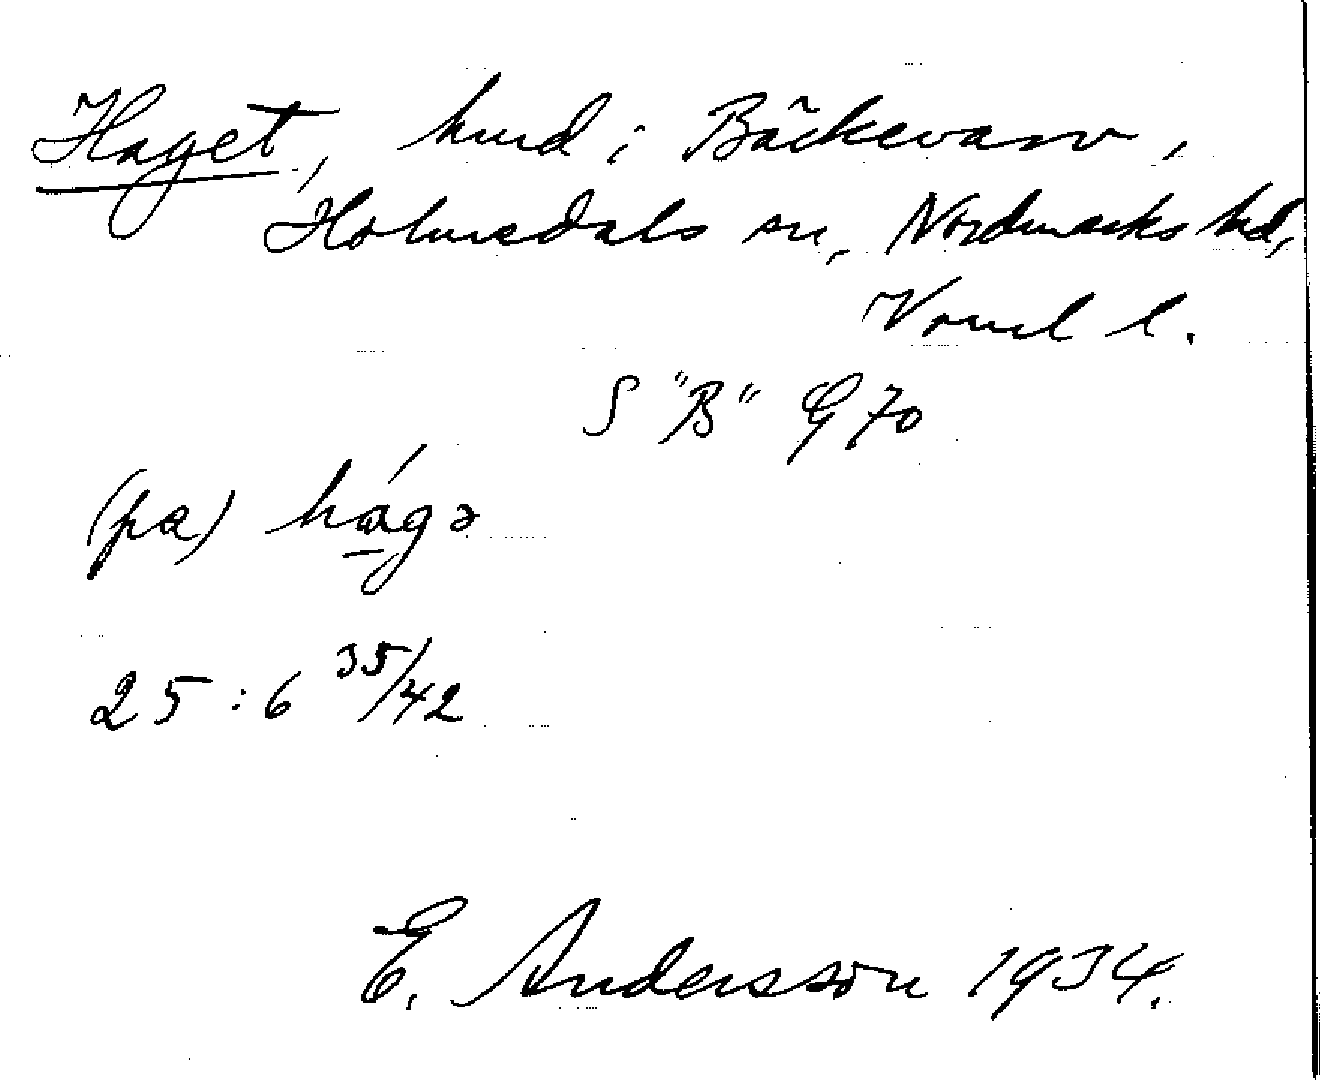 Haget, hmd i Bäckevarv,
Holmedals sn, Nordmarks hd,
Värml l.
S "B" G 70
(pa) hágə
25:6 35/42
E. Andersson 1934.